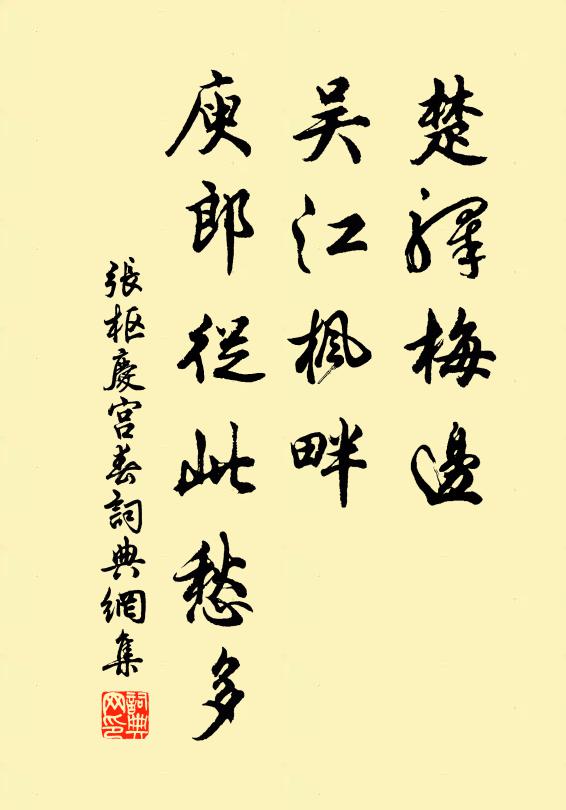 楚驛梅邊
吴江楓畔
庾郎從此愁多
張枢慶宫春詞典網集
詞典网印